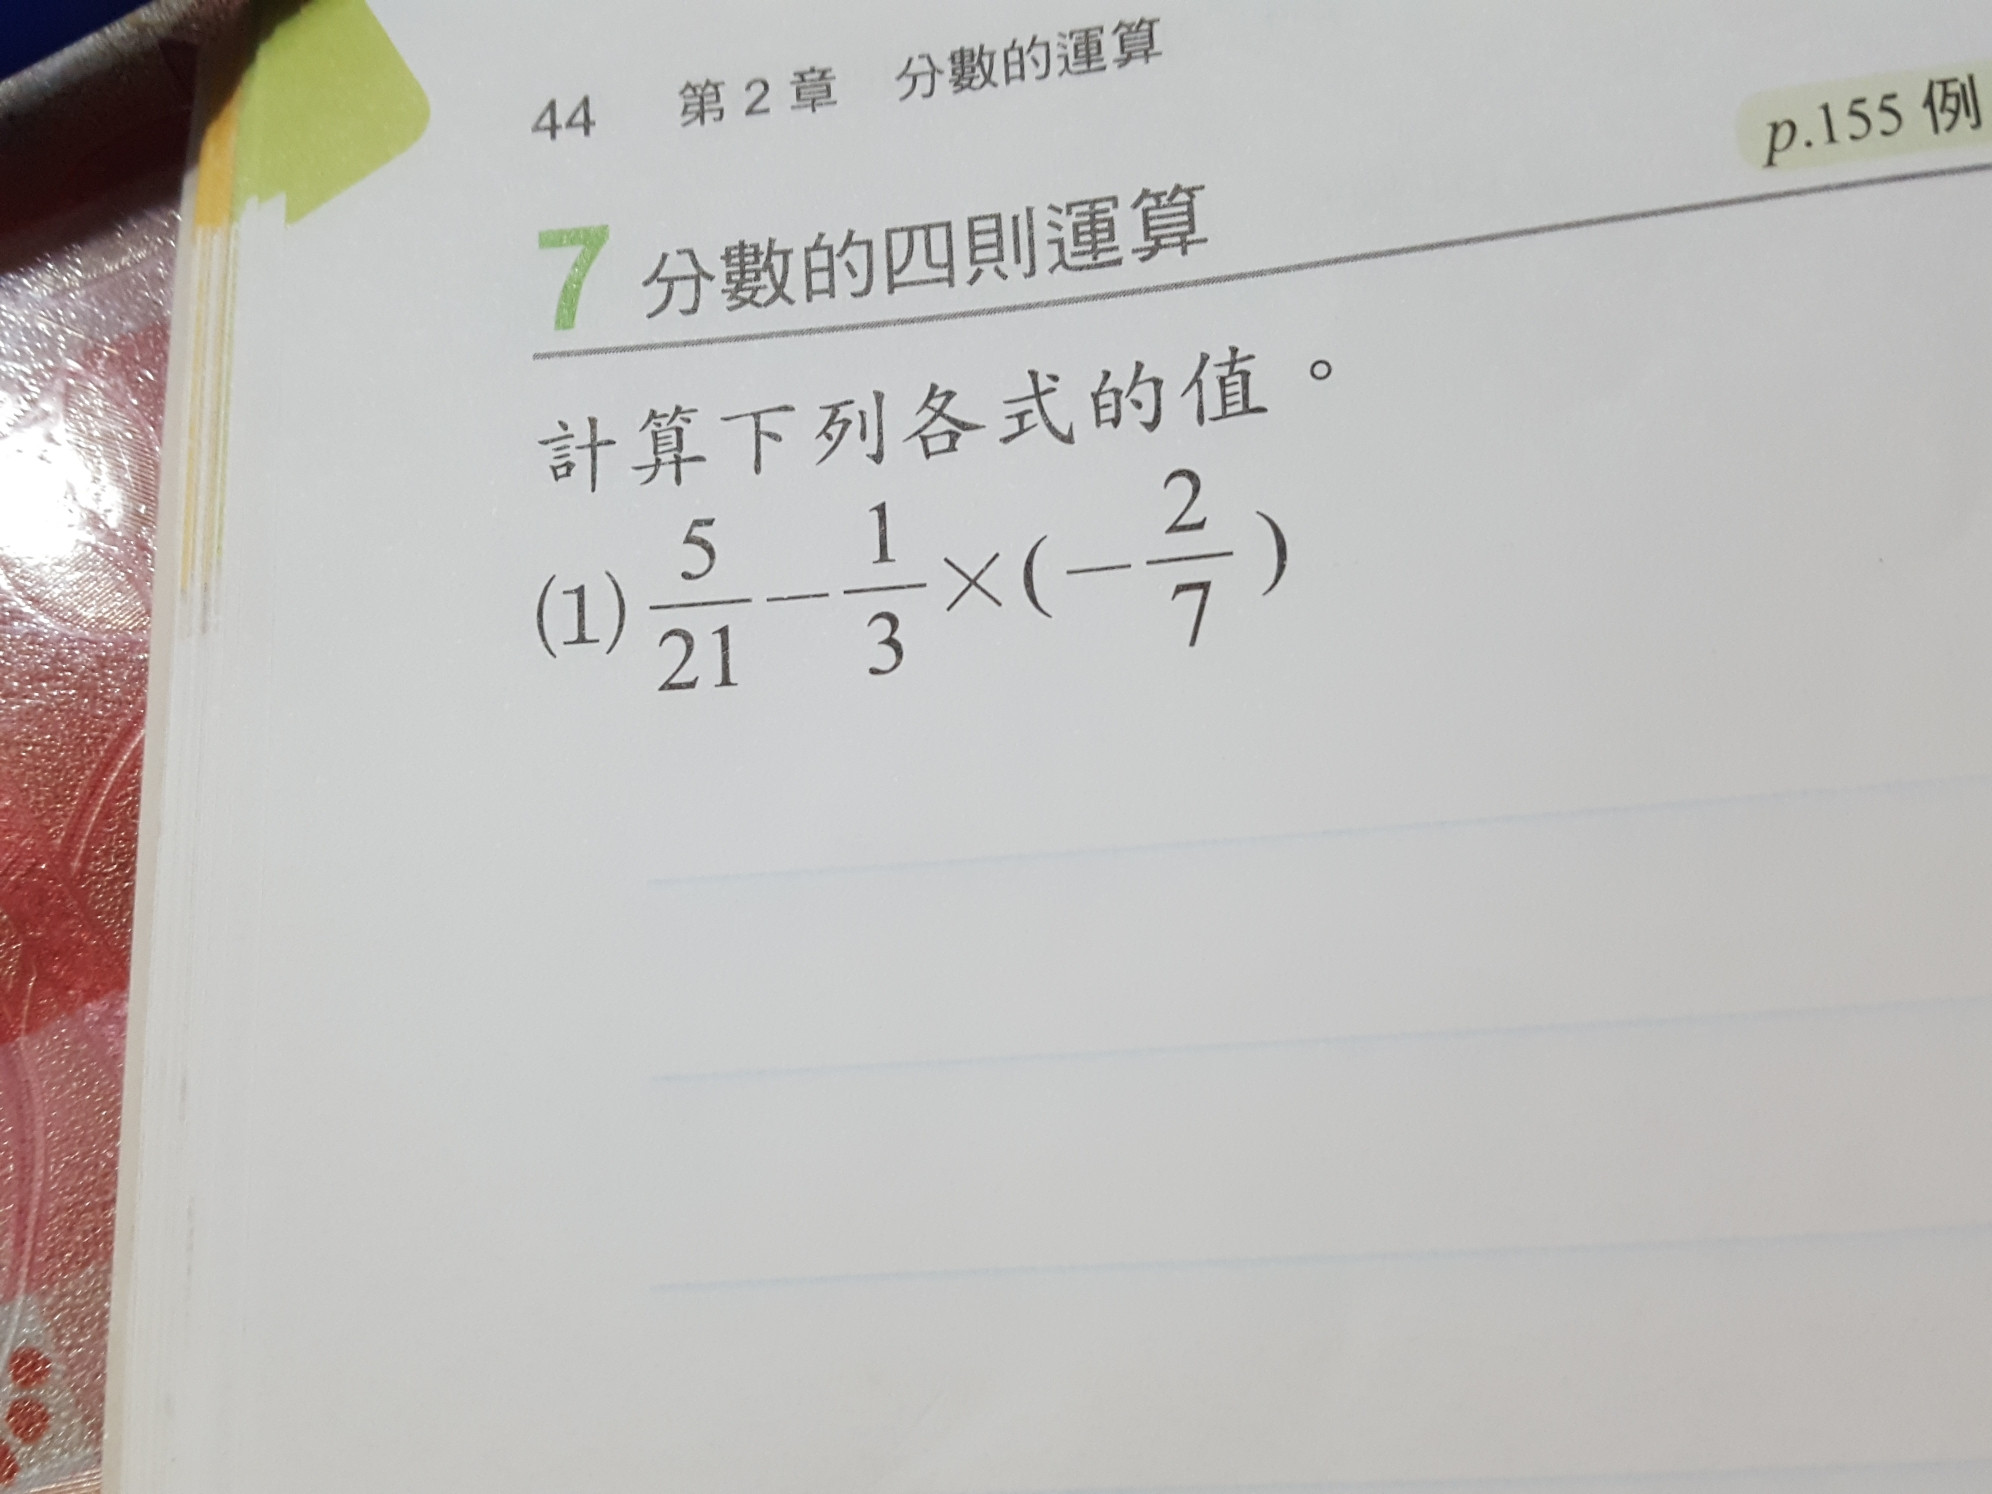 44 第2章 分數的運算
p.155 例
7 分數的四則運算
計算下列各式的值。
(1) 5/21 − 1/3 × (− 2/7)